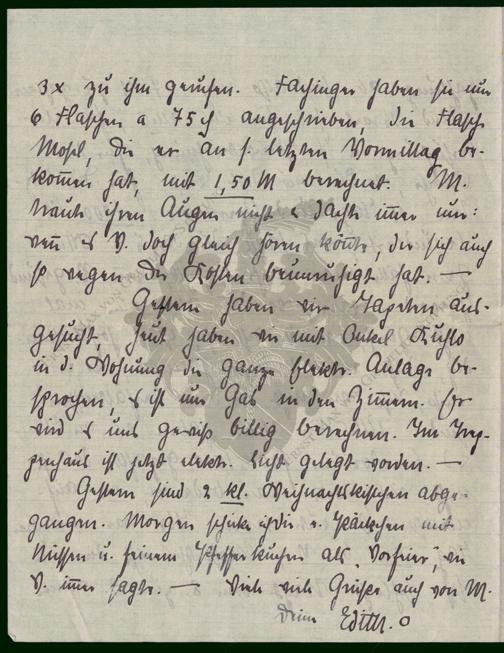 3x zu ihm gerufen. Fachinger haben sie nur
6 Flaschen a 75 ₰ angeschrieben, die Flasche
Mosel, die er an s. letzten Vormittag be-
kom̄en hat, mit 1,50 M berechnet. M.
traute ihren Augen nicht & dachte im̄er nur:
wen̄ es V. doch gleich hören kön̄te, der sich auch
so wegen der Kosten beunruhigt hat. —
Gestern haben wir Tapeten aus-
gesucht, heut haben wir mit Onkel
in d. Wohnung die ganze elektr. Anlage be-
sprochen, es ist nur Gas in den Zim̄ern. Er
wird es uns gewiß billig berechnen. Im Trep-
penhaus ist jetzt elektr. Licht gelegt worden. —
Gestern sind 2 kl. Weihnachtskistchen abge-
gangen. Morgen schicke ich dir e. Päckchen mit
Nüssen u. feinem Pfefferkuchen als „Vorfeier", wie
V. im̄er sagte. — Viele viele Grüße auch von M.
Deine Edith.